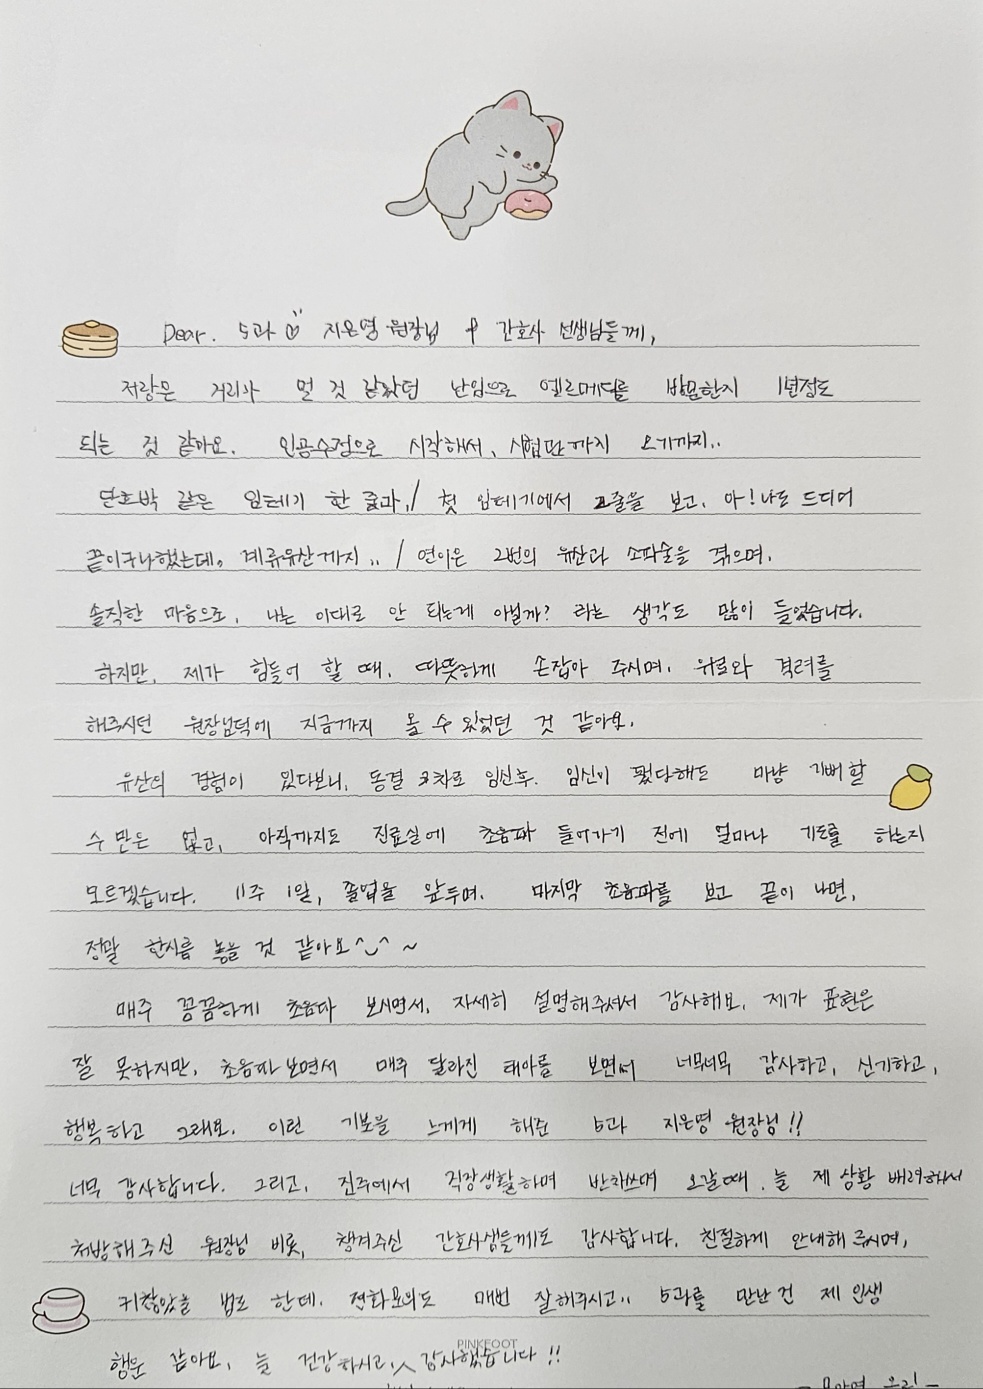 Dear. 5과 지은영 원장님 + 간호사 선생님들께,
저랑은 거리가 멀 것 같았던 난임으로 엘르메디를 방문한지 1년정도
되는 것 같아요. 인공수정으로 시작해서, 시험관까지 오기까지..
단호박 같은 임테기 한 줄과,/ 첫 임테기에서 2줄을 보고, 아! 나도 드디어
끝이구나했는데, 계류유산까지 .. / 연이은 2번의 유산과 소파술을 겪으며.
솔직한 마음으로, 나는 이대로 안 되는게 아닐까? 라는 생각도 많이 들었습니다.
하지만, 제가 힘들어 할 때, 따뜻하게 손잡아 주시며, 위로와 격려를
해주시던 원장님덕에 지금까지 올 수 있었던 것 같아요.
유산의 경험이 있다보니, 동결 3차로 임신후. 임신이 됐다해도 마냥 기뻐할
수 만은 없고, 아직까지도 진료실에 초음파 들어가기 전에 얼마나 기도를 하는지
모르겠습니다. 11주 1일, 졸업을 앞두며. 마지막 초음파를 보고 끝이 나면,
정말 한시름 놓을 것 같아요^‿^ ~
매주 꼼꼼하게 초음파 보시면서, 자세히 설명해주셔서 감사해요, 제가 표현은
잘 못하지만, 초음파 보면서 매주 달라진 태아를 보면서 너무너무 감사하고, 신기하고,
행복하고 그래요. 이런 기분을 느끼게 해준 5과 지은영 원장님!!
너무 감사합니다. 그리고, 진주에서 직장생활하며 반차쓰며 오갈때, 늘 제 상황 배려해서
처방해주신 원장님 비롯, 챙겨주신 간호사샘들께도 감사합니다. 친절하게 안내해 주시며,
귀찮았을 법도 한데. 전화문의도 매번 잘해주시고.. 5과를 만난건 제 인생
행운 같아요, 늘 건강하시고, 감사했습니다!!
PINKFOOT